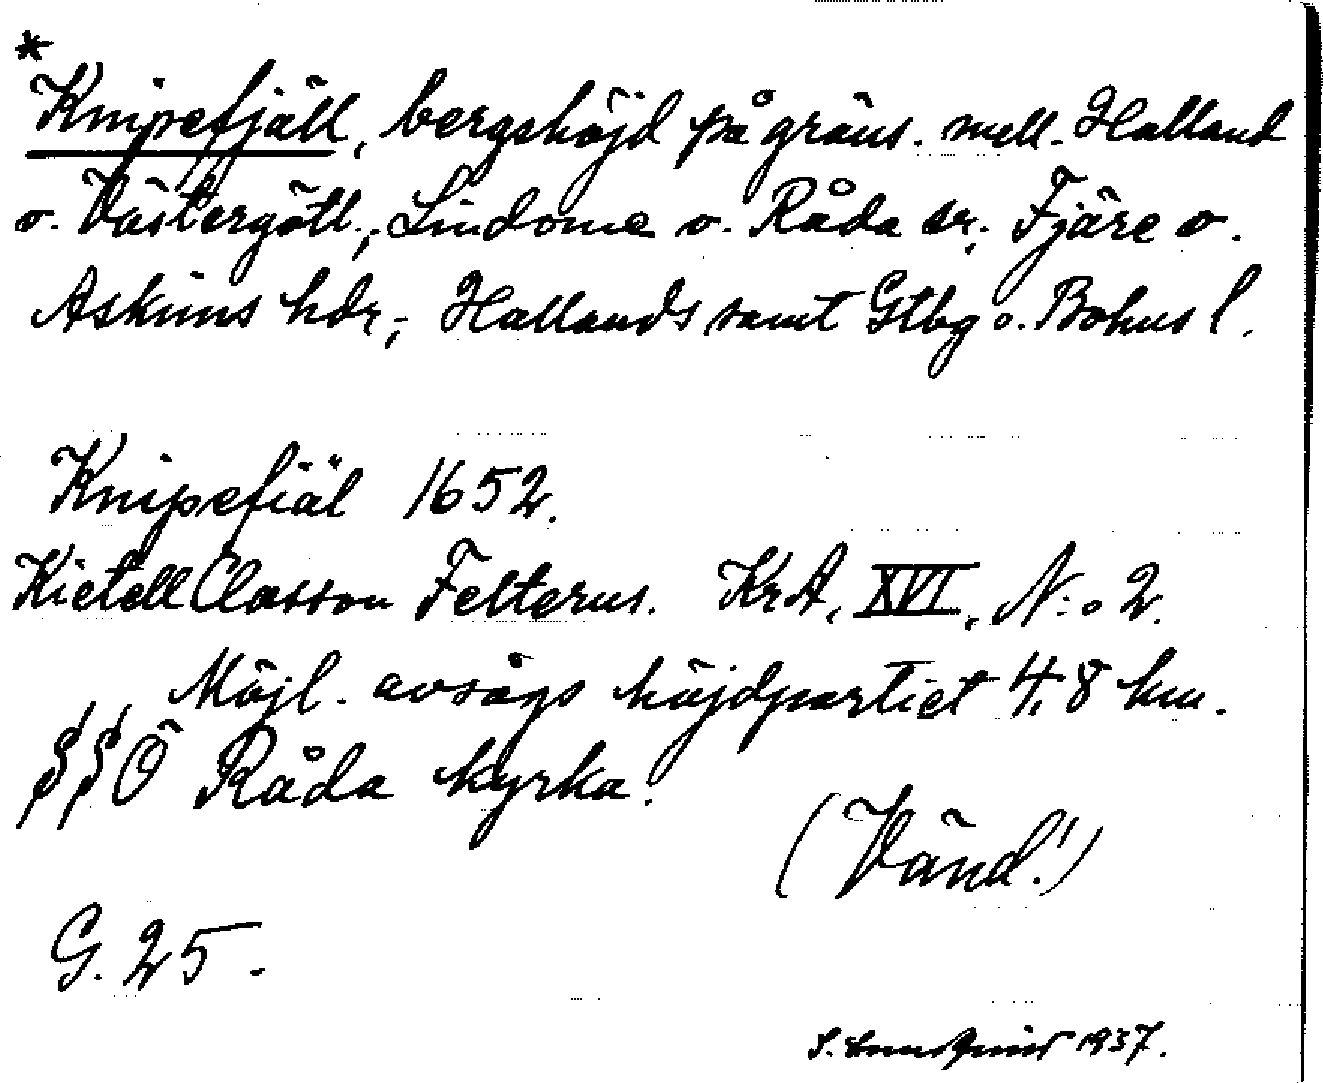 *
Knipefjäll, bergshöjd på gräns. mell. Halland
o. Västergötl.; Lindome o. Råda sr; Fjäre o.
Askims hdr; Hallands samt Gtbg o. Bohus l.
Knipefiäl 1652.
Kietell Classon Felterus. KrA, XVI, N:o 2.
Möjl. avsågs höjdpartiet 4,8 km.
§§ Ö Råda kyrka.
(Vänd!)
G. 25.
S. 1937.